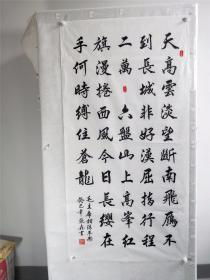 天高雲淡望斷南飛雁不
到長城非好漢屈指行程
二萬 六盤山上高峰紅
旗漫捲西風今日長纓在
手何時縛住蒼龍
毛主席詞
癸巳年